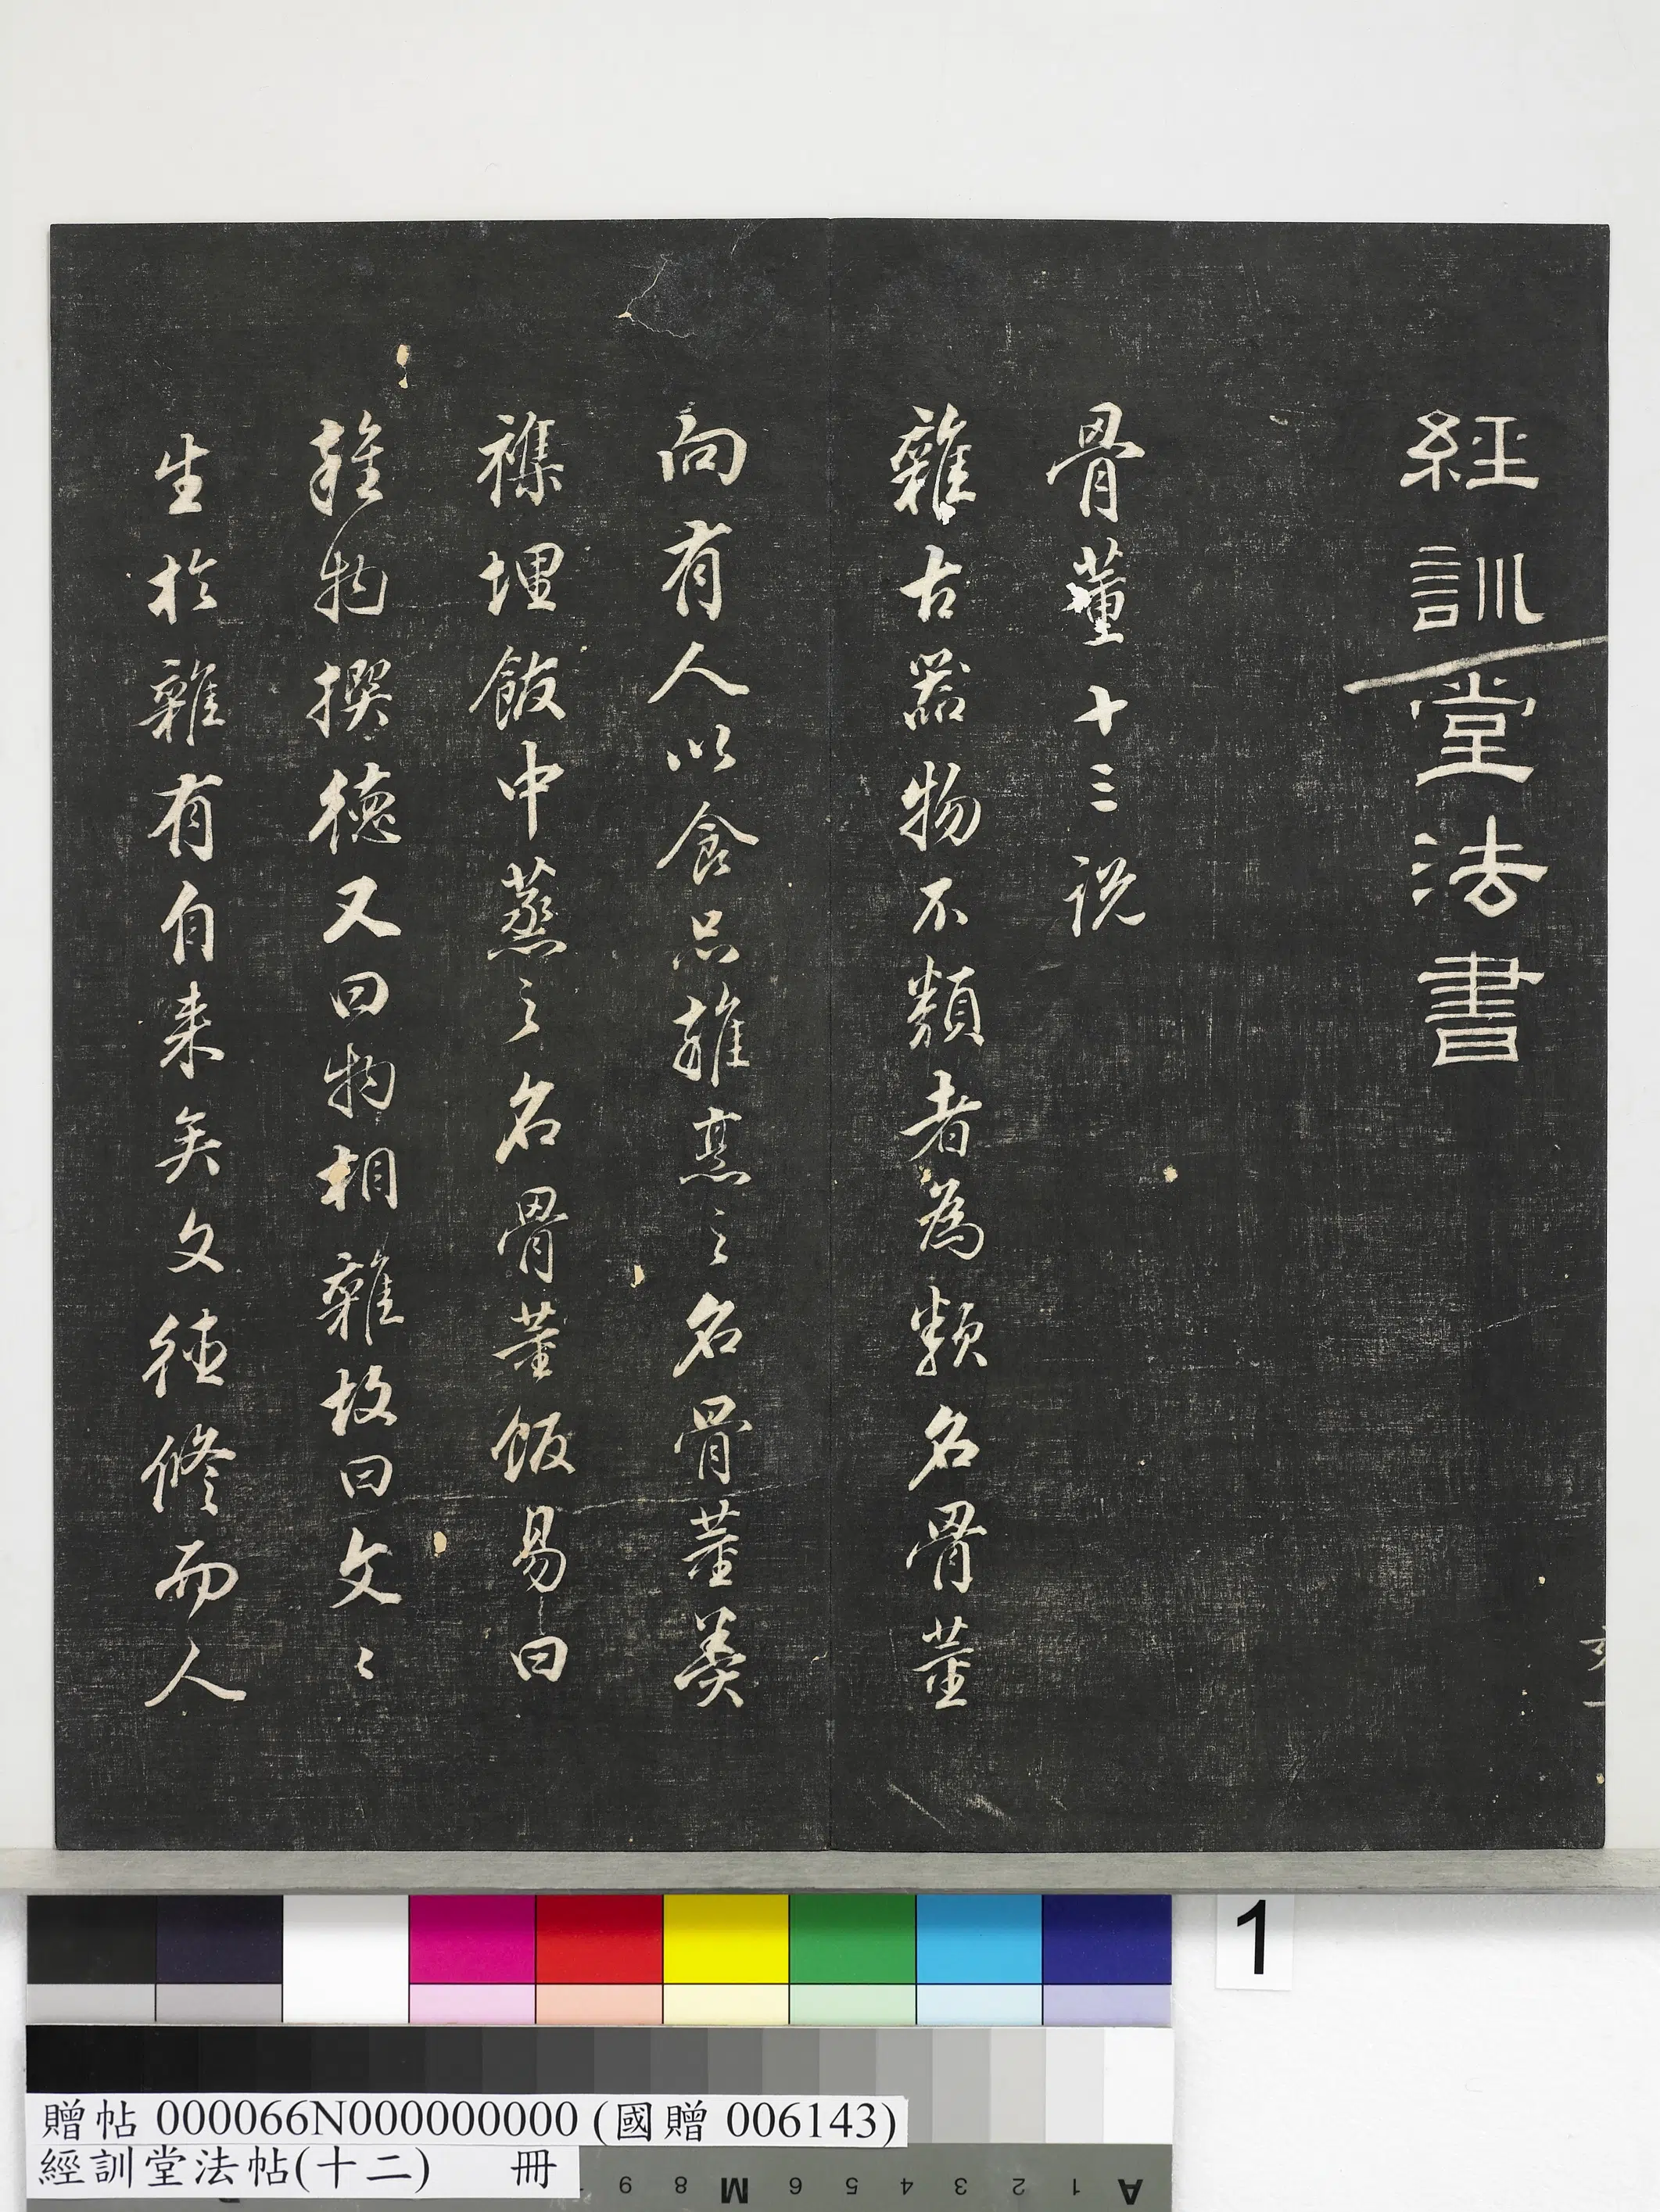 經訓堂法書
骨董十三說
雜古器物不類者為類名骨董
向有人以食品雜烹之名骨董羹
襍埋飯中蒸之名骨董飯易曰
雜物撰德又曰物相雜故曰文〻
生於雜有自来矣文德修而人
1
贈帖 000066N000000000 (國贈 006143)
經訓堂法帖(十二) 冊
A 1 2 3 4 5 6 M 8 9